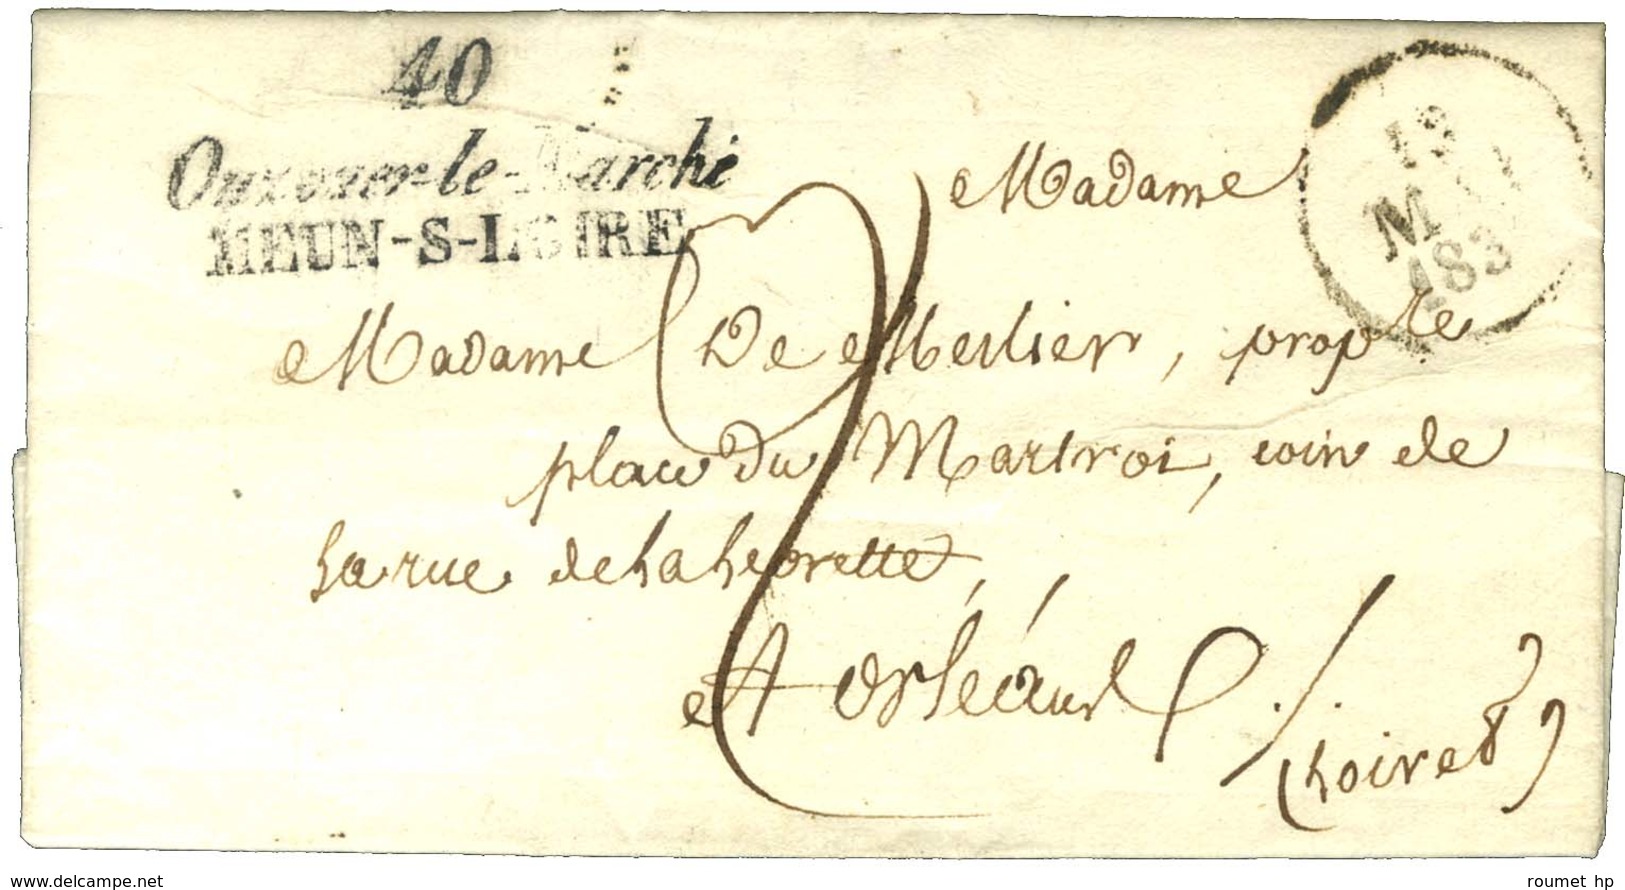 40
Ouzouer-le-Marché
MEUN-S-LOIRE
19
MAI
183
Madame
Madame De Merlier, prop.te
place du Martroi, coin de
la rue de la
A orléans
Loiret
www.delcampe.net
roumet hp